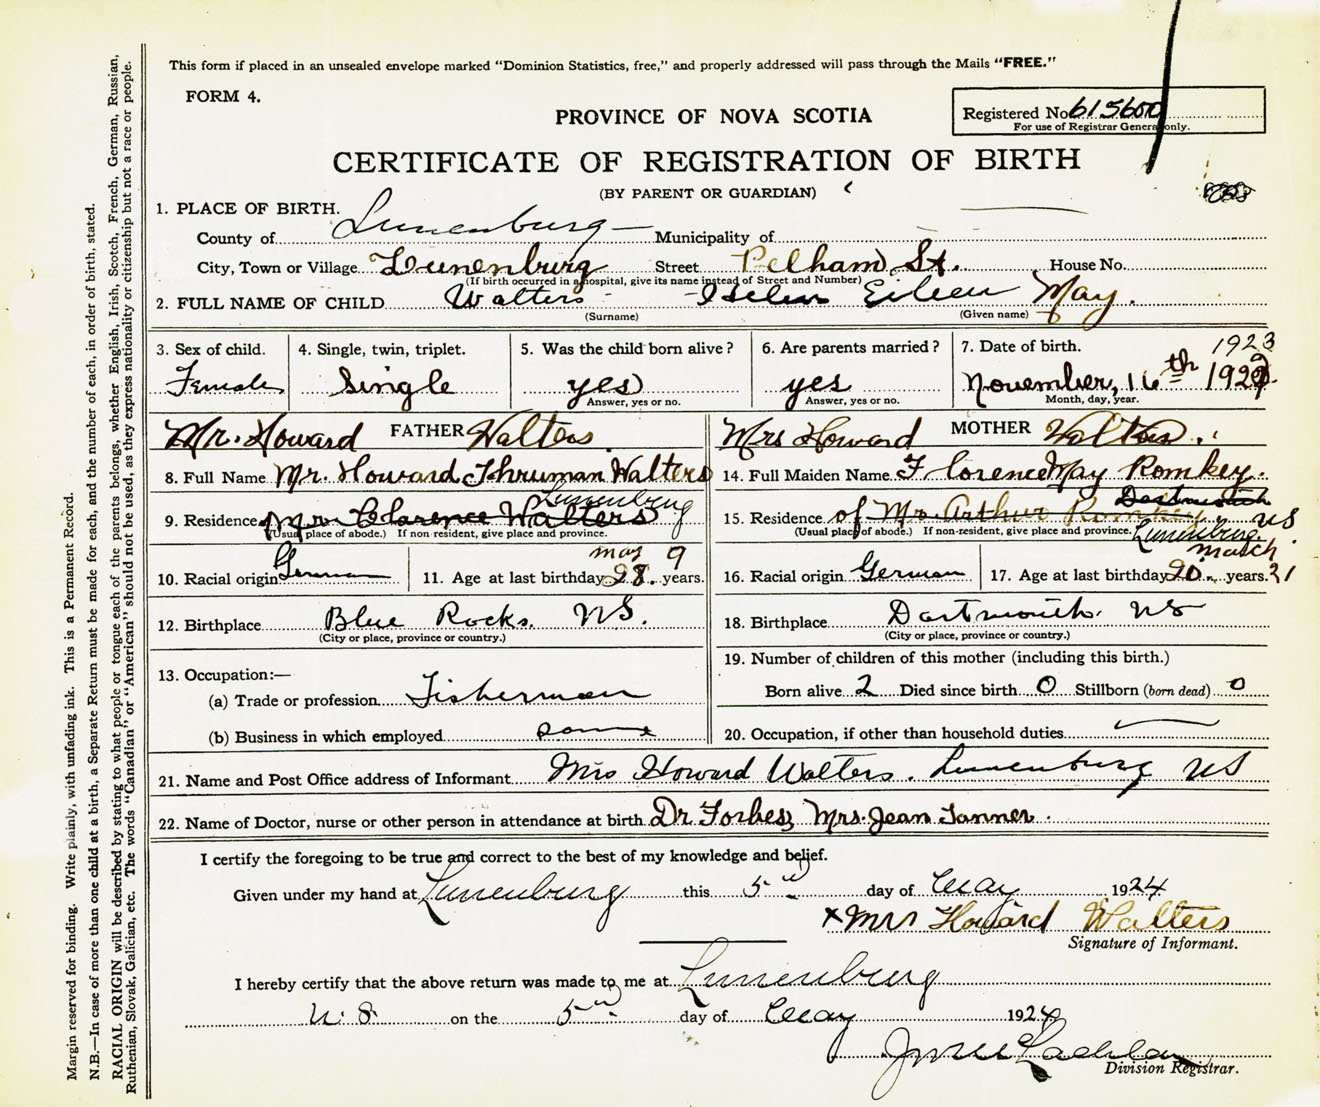 This form if placed in an unsealed envelope marked "Dominion Statistics, free," and properly addressed will pass through the Mails "FREE."
FORM 4.
PROVINCE OF NOVA SCOTIA
Registered No. 615600
For use of Registrar General only.
CERTIFICATE OF REGISTRATION OF BIRTH
(BY PARENT OR GUARDIAN)
1. PLACE OF BIRTH.
County of Lunenburg Municipality of
City, Town or Village Lunenburg Street Pelham St. House No.
(If birth occurred in a hospital, give its name instead of Street and Number)
2. FULL NAME OF CHILD Walters - Helen Eileen May.
(Surname) (Given name)
3. Sex of child. 4. Single, twin, triplet. 5. Was the child born alive? 6. Are parents married? 7. Date of birth. 1923
Female Single yes yes November, 16th 192
Answer, yes or no. Answer, yes or no. Month, day, year.
Mr. Howard FATHER Walters. Mrs Howard MOTHER Walters.
8. Full Name Mr. Howard Thruman Walters 14. Full Maiden Name Florence May Romkey.
Lunenburg Dartmouth
9. Residence Mr. Clarence Walters 15. Residence of Mr. Arthur Romkey. NS
(Usual place of abode.) If non-resident, give place and province. (Usual place of abode.) If non-resident, give place and province. Lunenburg.
may 9 march
10. Racial origin German 11. Age at last birthday 28. years. 16. Racial origin German 17. Age at last birthday 20. years. 21
12. Birthplace Blue Rocks. NS. 18. Birthplace Dartmouth. NS
(City or place, province or country.) (City or place, province or country.)
13. Occupation:— 19. Number of children of this mother (including this birth.)
(a) Trade or profession Fisherman Born alive 2 Died since birth 0 Stillborn (born dead) 0
(b) Business in which employed same 20. Occupation, if other than household duties
21. Name and Post Office address of Informant Mrs Howard Walters. Lunenburg NS
22. Name of Doctor, nurse or other person in attendance at birth Dr Forbes, Mrs. Jean Tanner.
I certify the foregoing to be true and correct to the best of my knowledge and belief.
Given under my hand at Lunenburg this 5th day of May 1924
x Mrs Howard Walters
Signature of Informant.
I hereby certify that the above return was made to me at Lunenburg
N.S. on the 5th day of May 1924
Division Registrar.
Margin reserved for binding. Write plainly, with unfading ink. This is a Permanent Record.
N.B.—In case of more than one child at a birth, a Separate Return must be made for each, and the number of each, in order of birth, stated.
RACIAL ORIGIN will be described by stating to what people or tongue each of the parents belongs, whether English, Irish, Scotch, French, German, Russian,
Ruthenian, Slovak, Galician, etc. The words "Canadian" or "American" should not be used, as they express nationality or citizenship but not a race or people.